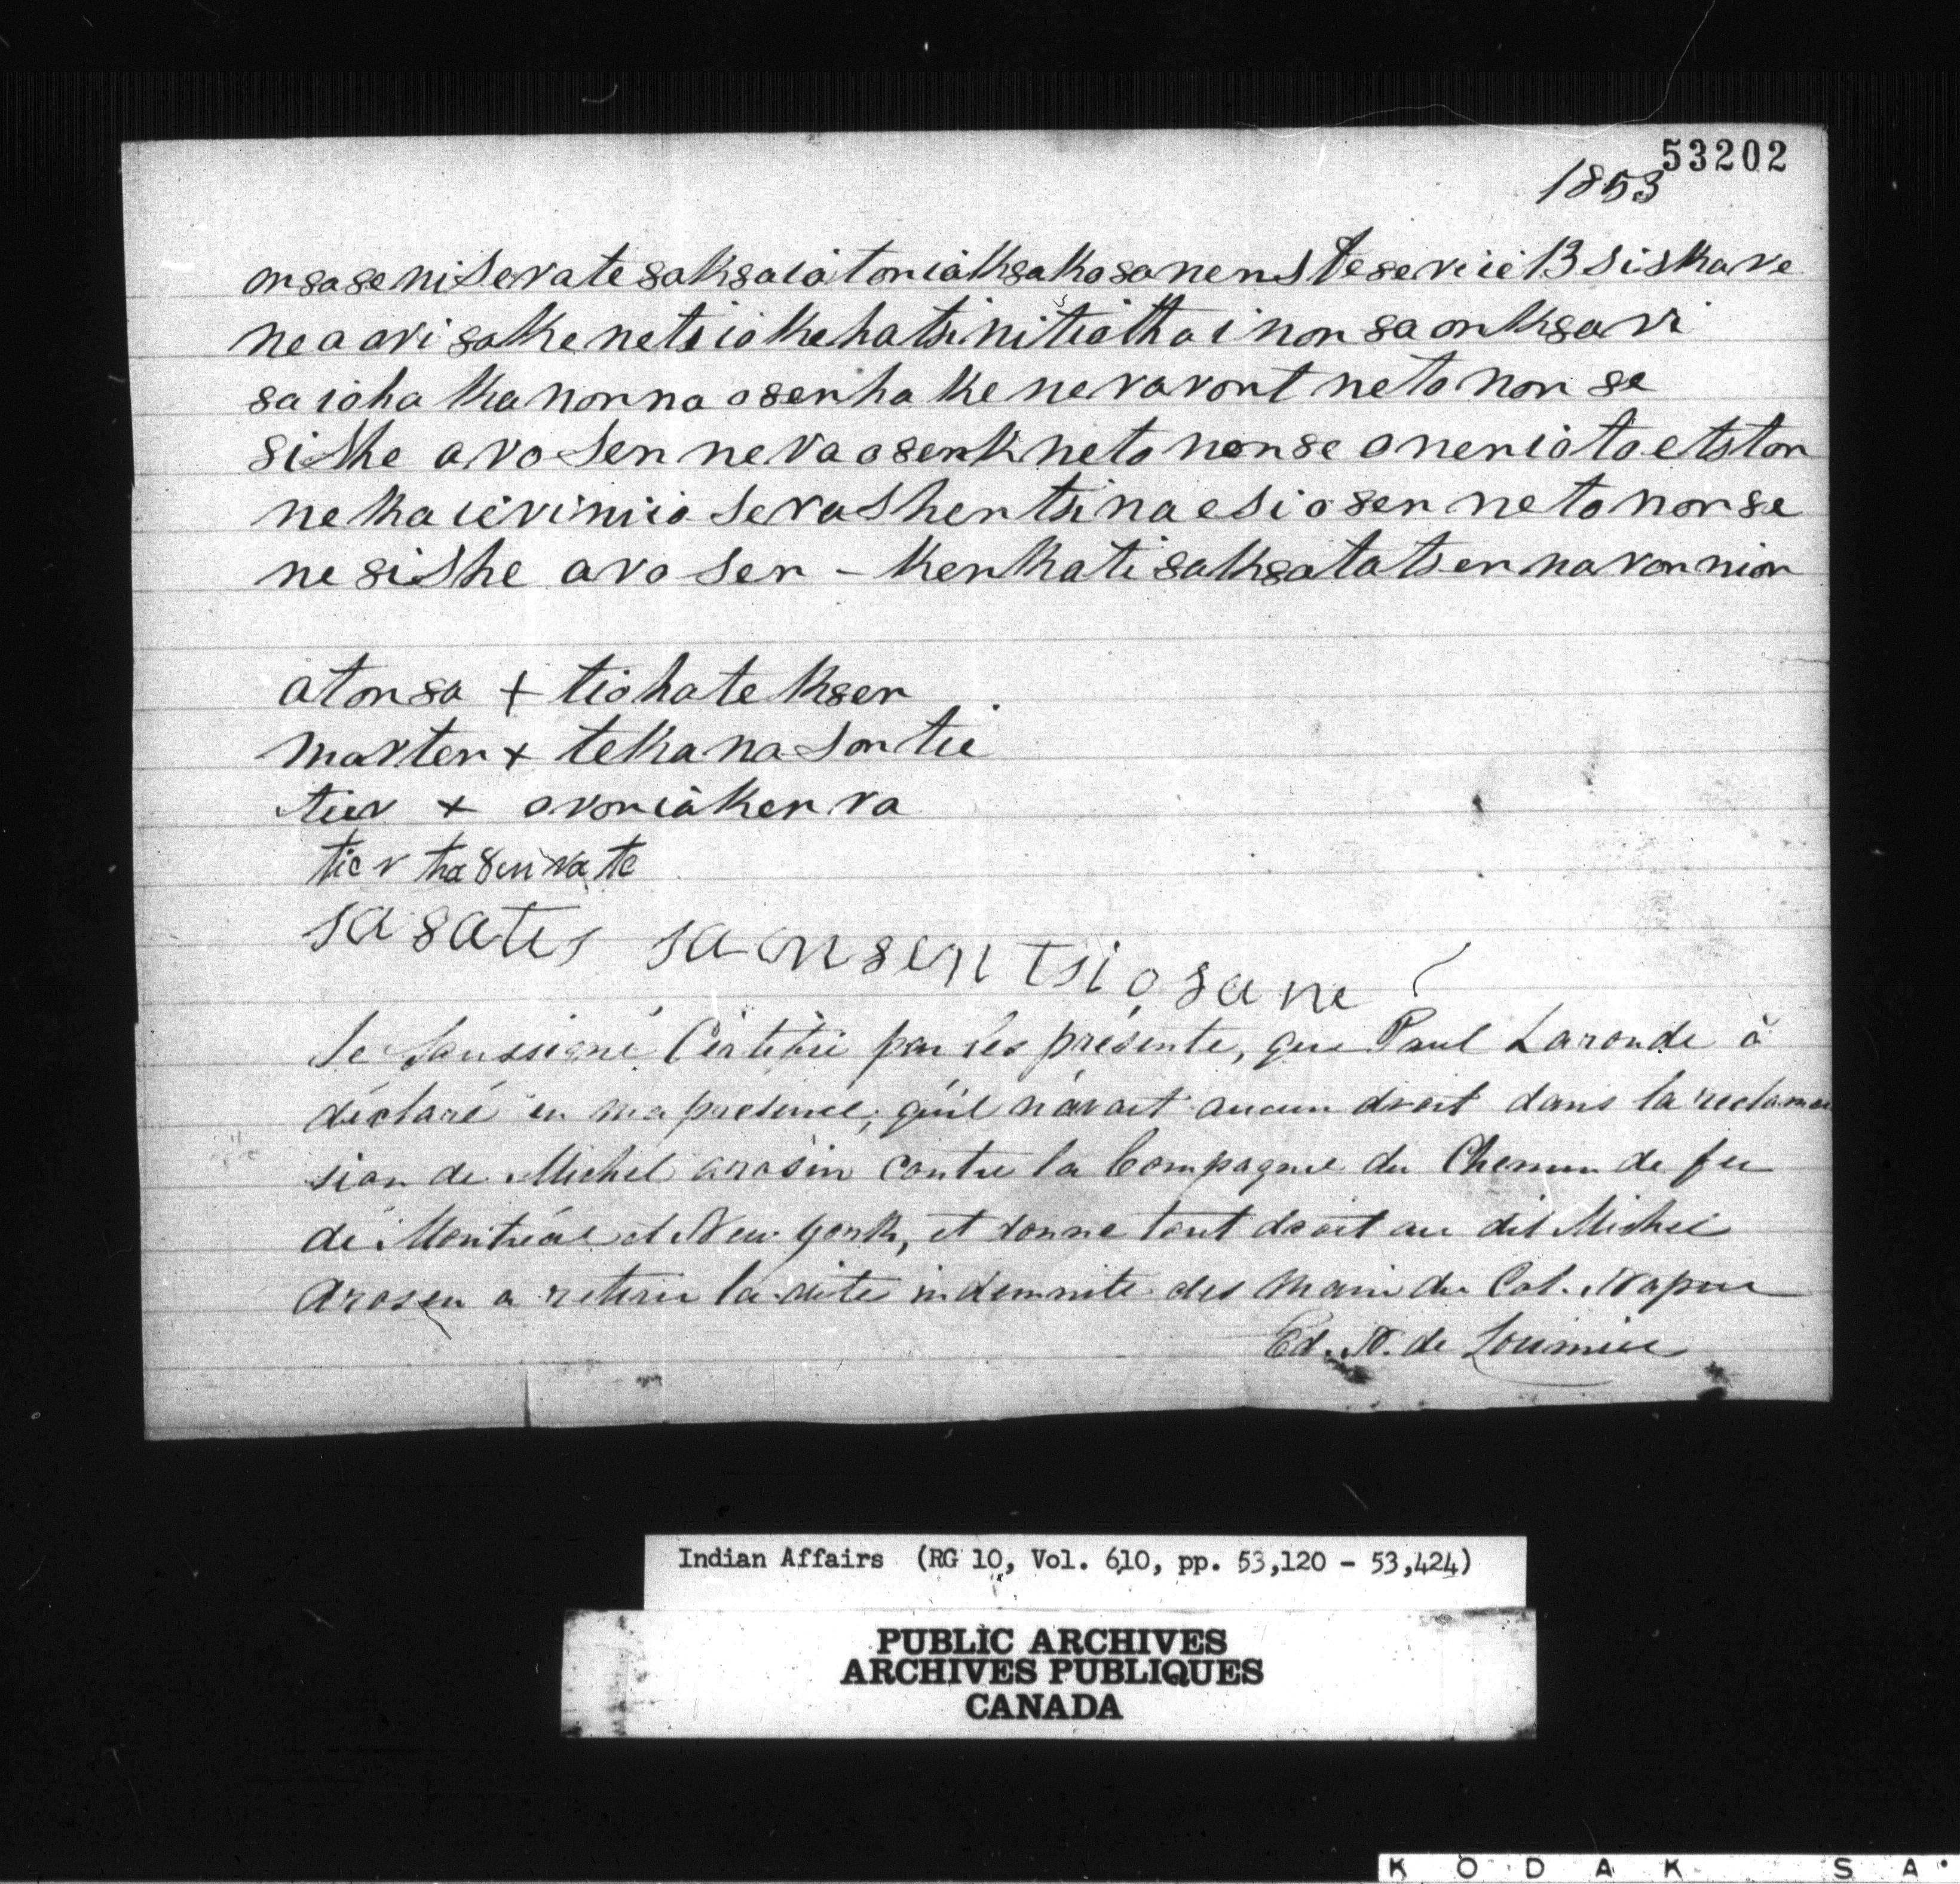 53202
1853
on8a8eniserate8ak8aiàtoriàk8ako8anens teserié 13 siskare
neaari8akenetsiokehatsinitiotthoinon8aonk8ari
8aiohakanonnao8enhakeneraront netonon8e
8iske arosen nerao8enk netonon8e oneriotoetston
nekaiérinió seraskentsinaesio8en netonon8e
ne8iske arosen - kenkati8ak8atatsennaronnion
aton8a + tiohatek8en
marten + tekanasontié
tier + aroniàkenra
tier tha8enrate
sa8atis saon8entsio8ane
Je Soussigné Certifie par les présente, que Paul Laronde à
déclaré en ma présence, qu'il n'avait aucun droit dans la reclama
sion de Michel arosin contre la Compagnie du Chemin de fer
de Montréal et New york, et donne tout droit au dit Michel
Arosen a retirer la dite indemnite des main du Col. Napier
Ed. N. de Lorimier
Indian Affairs (RG 10, Vol. 610, pp. 53,120 - 53,424)
PUBLIC ARCHIVES
ARCHIVES PUBLIQUES
CANADA
K O D A K S A